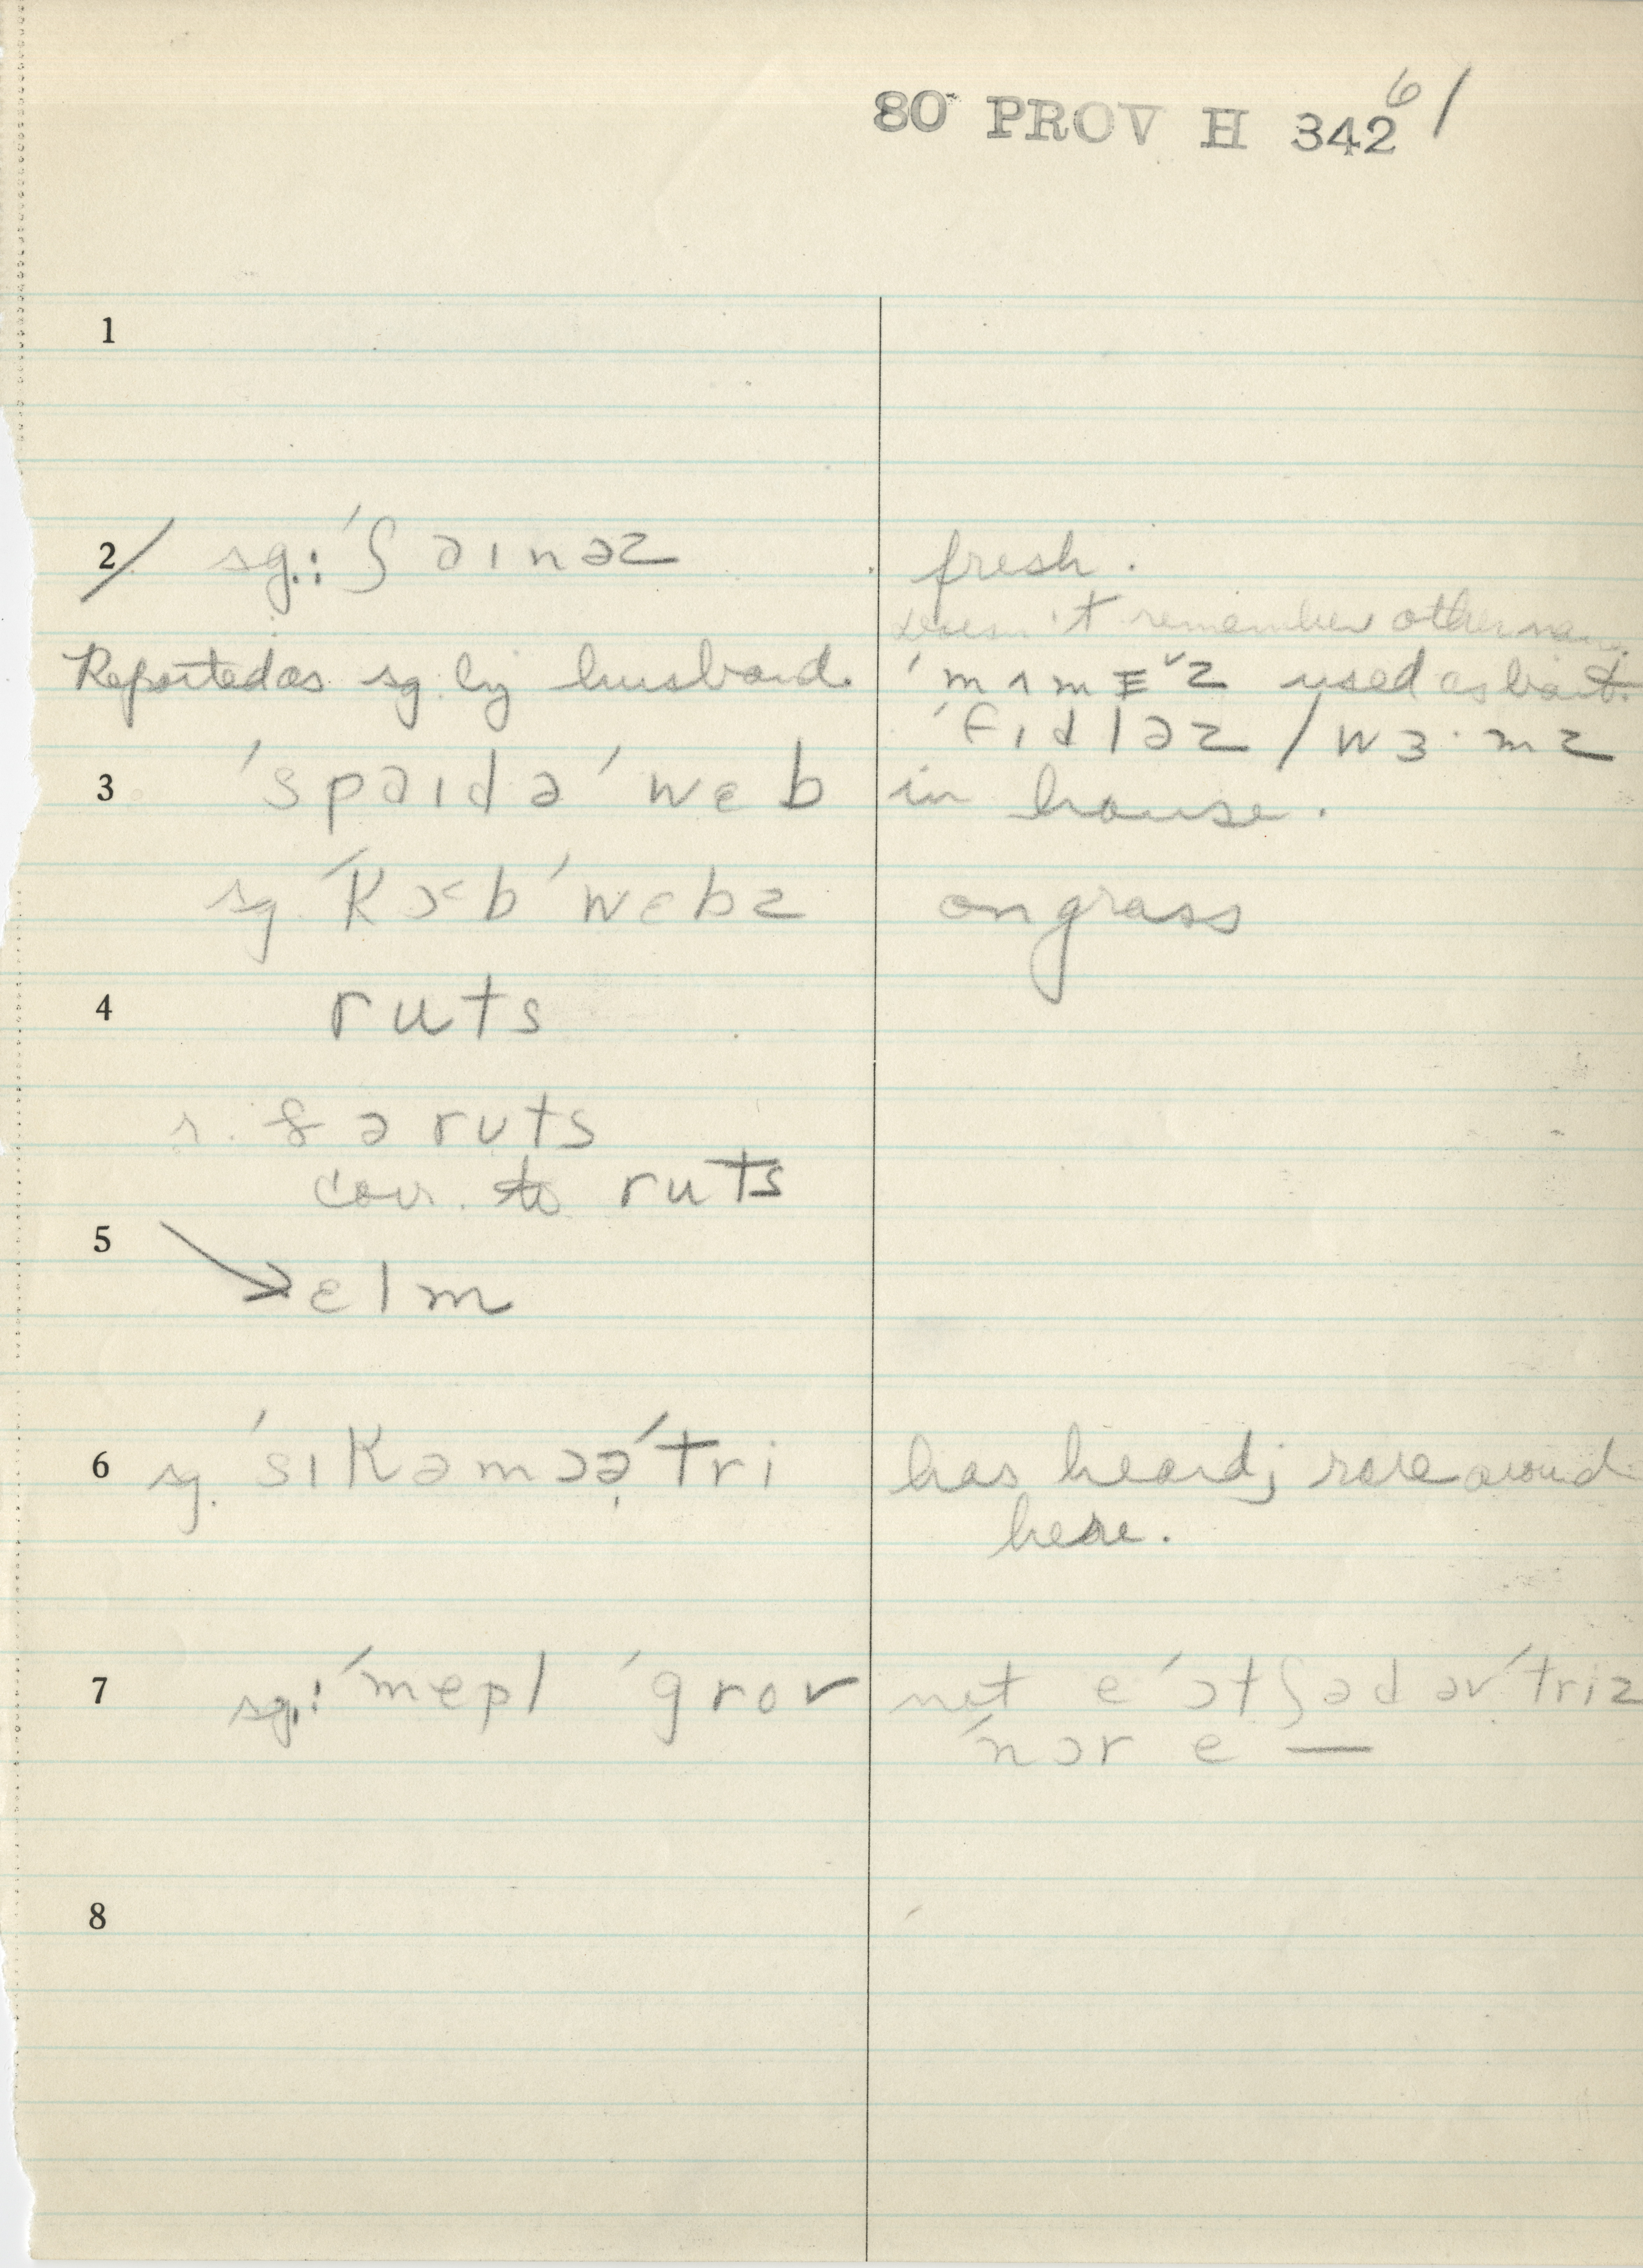 80 PROV H 342 61
1
2/ sg.: ˈʃəɪnəz fresh.
doesn't remember other name.
Reported as sg. by husband. ˈmʌmɪz used as bait.
ˈfɪdləz / wɜ·mz
3 ˈspəɪdəˈwɛb in house.
sg. ˈkɔbˈwɛbz on grass
4 ruts
r. ðə rʊts
cor. to ruts
5 → ɛlm
6 sg. ˈsɪkəmɔəˈtri has heard; rare around
here.
7 sg.: ˈmepl ˈgrov not e ˈɔtʃəd əv ˈtriz
ˈnɔr e —
8